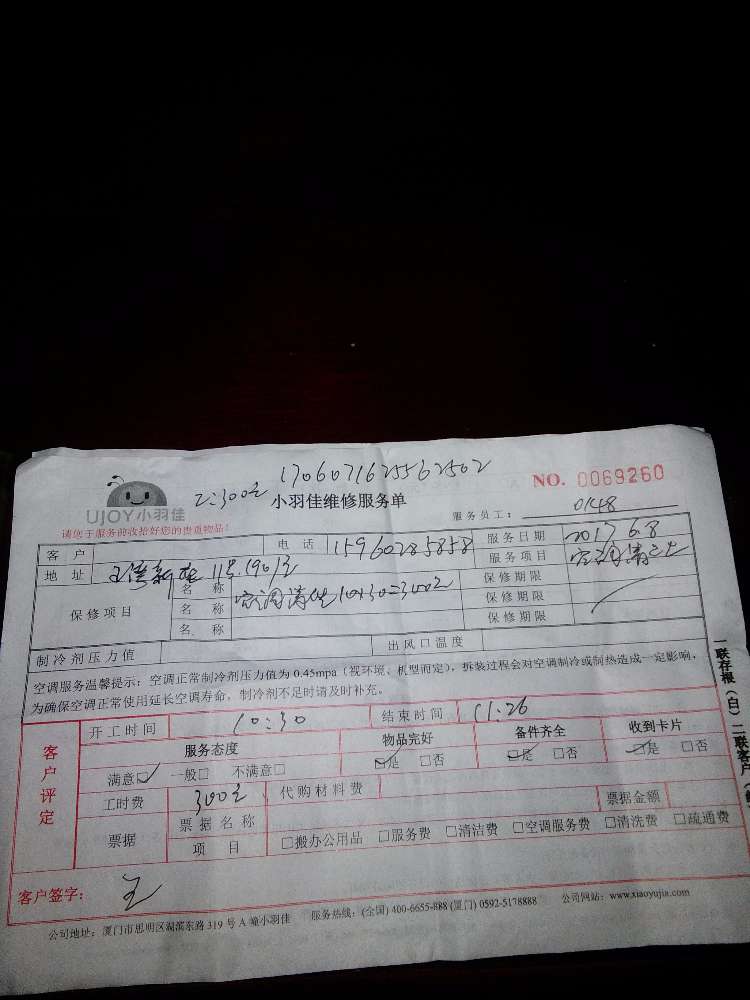 170607162556 2502
NO. 0069260
UJOY小羽佳
300元
小羽佳维修服务单
服务员工: 0148
请您于服务前收拾好您的贵重物品!
客户 电话 15960285858 服务日期 2017 6.8
地址 11号 服务项目 空调清洗
保修项目 名称 空调清洗 10×30=300元 保修期限
名称 保修期限
名称 保修期限
制冷剂压力值 出风口温度
空调服务温馨提示:空调正常制冷剂压力值为 0.45mpa(视环境、机型而定),拆装过程会对空调制冷或制热造成一定影响。
为确保空调正常使用延长空调寿命,制冷剂不足时请及时补充。
开工时间 10:30 结束时间 11:26
客户评定
服务态度 物品完好 备件齐全 收到卡片
满意□ 一般□ 不满意□ □是 □否 □是 □否 □是 □否
工时费 300元 代购材料费
票据 票据名称 票据金额
项目 □搬办公用品 □服务费 □清洁费 □空调服务费 □清洗费 □疏通费
客户签字: 王
公司地址:厦门市思明区湖滨东路 319 号 A 幢小羽佳 服务热线:(全国) 400-6655-888 (厦门) 0592-5178888 公司网站:www.xiaoyujia.com
一联存根(白) 二联客户